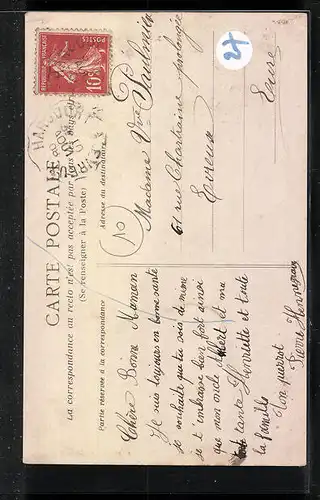 CARTE POSTALE
La correspondance au recto n'est pas acceptée par tous les pays
(Se renseigner à la Poste)
Partie réservée à la correspondance
Adresse du destinataire
REPUBLIQUE FRANÇAISE
POSTES
10c
27
Chère Bonne Maman
Je suis toujours en bonne santé
je souhaite que tu sois de même
je t'embrasse bien fort ainsi
que mon oncle Albert et ma
tante Henriette et toute
la famille
Ton
Pierre
Madame Vve
61 rue Chartraine prolongée
Evreux
Eure